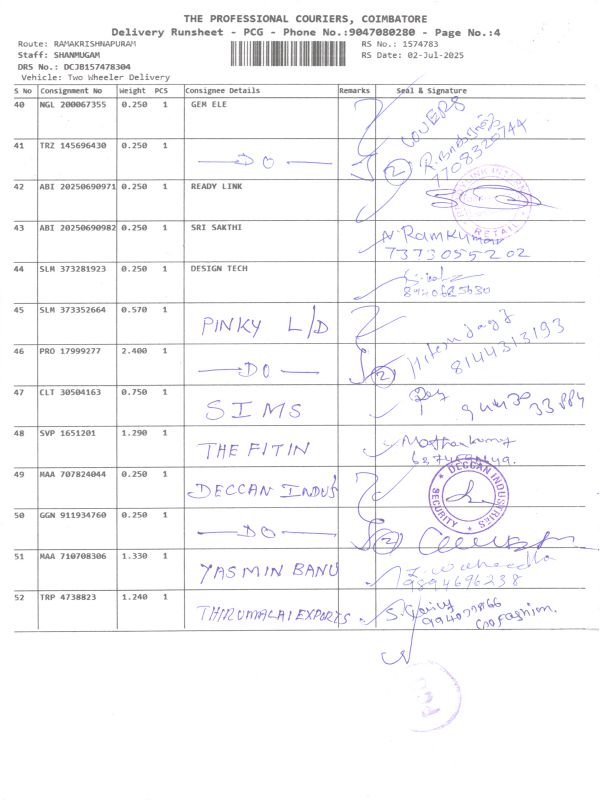 THE PROFESSIONAL COURIERS, COIMBATORE
Delivery Runsheet - PCG - Phone No.:9047080280 - Page No.:4
Route: RAMAKRISHNAPURAM RS No.: 1574783
Staff: SHANMUGAM RS Date: 02-Jul-2025
DRS No.: DCJB157478304
Vehicle: Two Wheeler Delivery
S No Consignment No Weight PCS Consignee Details Remarks Seal & Signature
40 NGL 200067355 0.250 1 GEM ELE COVERS
41 TRZ 145696430 0.250 1 DO 2 7708325744
42 ABI 20250690971 0.250 1 READY LINK RETAIL
43 ABI 20250690982 0.250 1 SRI SAKTHI N. Ramkumar
7373055202
44 SLM 373281923 0.250 1 DESIGN TECH
8940685630
45 SLM 373352664 0.570 1 PINKY L/D
46 PRO 17999277 2.400 1 DO 2 8144313193
47 CLT 30504163 0.750 1 SIMS
48 SVP 1651201 1.290 1 THE FITIN
49 MAA 707824044 0.250 1 DECCAN INDUS DECCAN INDUSTRIES SECURITY
50 GGN 911934760 0.250 1 DO 2
51 MAA 710708306 1.330 1 YASMIN BANU
9894696238
52 TRP 4738823 1.240 1 THIRUMALAI EXPORTS